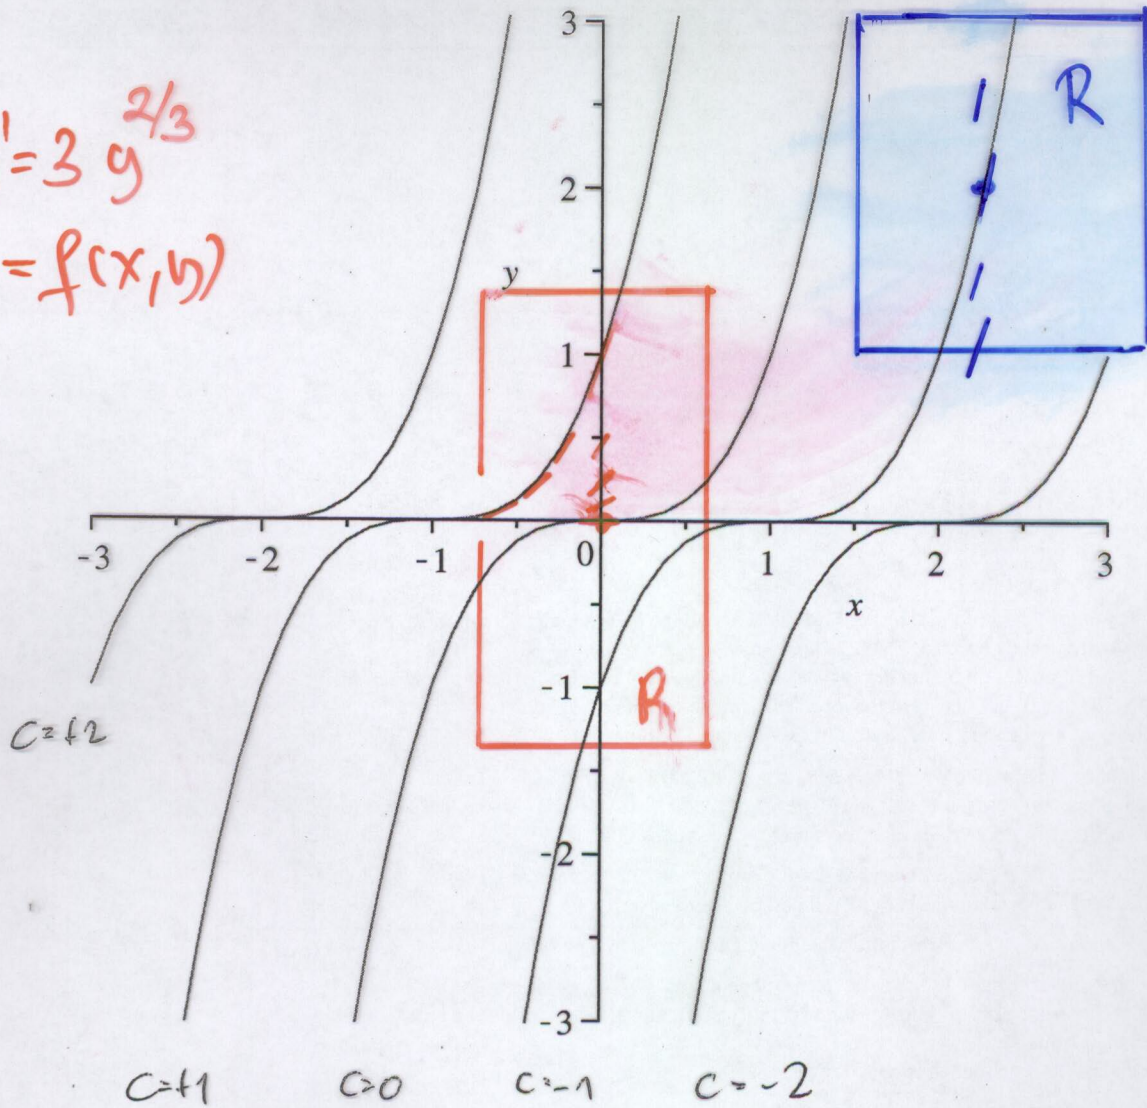 ' = 3 y^{2/3}
= f(x,y)
3
R
2
y
1
-3 -2 -1 0 1 2 3
x
-1
R
C=+2
-2
-3
C=+1 C=0 C=-1 C=-2